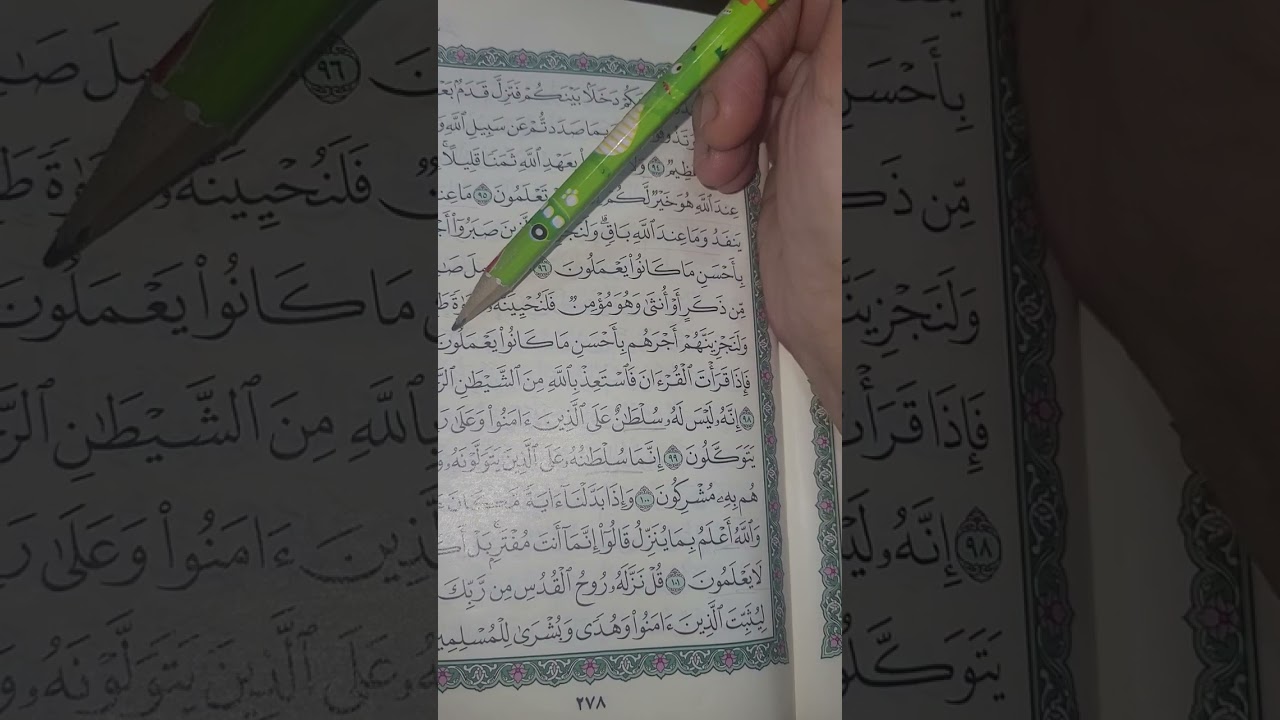 دَخَلًۢا بَيْنَكُمْ فَتَزِلَّ قَدَمٌۢ
بِمَا صَدَدتُّمْ عَن سَبِيلِ ٱللَّهِ
عَظِيمٌ ٩٤ بِعَهْدِ ٱللَّهِ ثَمَنًا قَلِيلًا
عِندَ ٱللَّهِ هُوَ خَيْرٌ لَّكُمْ تَعْلَمُونَ ٩٥ مَا
يَنفَدُ وَمَا عِندَ ٱللَّهِ بَاقٍ صَبَرُوٓا۟
بِأَحْسَنِ مَا كَانُوا۟ يَعْمَلُونَ ٩٦
مِّن ذَكَرٍ أَوْ أُنثَىٰ وَهُوَ مُؤْمِنٌ فَلَنُحْيِيَنَّهُۥ
وَلَنَجْزِيَنَّهُمْ أَجْرَهُم بِأَحْسَنِ مَا كَانُوا۟ يَعْمَلُونَ
فَإِذَا قَرَأْتَ ٱلْقُرْءَانَ فَٱسْتَعِذْ بِٱللَّهِ مِنَ ٱلشَّيْطَٰنِ
٩٨ إِنَّهُۥ لَيْسَ لَهُۥ سُلْطَٰنٌ عَلَى ٱلَّذِينَ ءَامَنُوا۟ وَعَلَىٰ
يَتَوَكَّلُونَ ٩٩ إِنَّمَا سُلْطَٰنُهُۥ عَلَى ٱلَّذِينَ يَتَوَلَّوْنَهُۥ
هُم بِهِۦ مُشْرِكُونَ ١٠٠ وَإِذَا بَدَّلْنَآ ءَايَةً
وَٱللَّهُ أَعْلَمُ بِمَا يُنَزِّلُ قَالُوٓا۟ إِنَّمَآ أَنتَ مُفْتَرٍۭ بَلْ
لَا يَعْلَمُونَ ١٠١ قُلْ نَزَّلَهُۥ رُوحُ ٱلْقُدُسِ مِن رَّبِّكَ
لِيُثَبِّتَ ٱلَّذِينَ ءَامَنُوا۟ وَهُدًى وَبُشْرَىٰ
٢٧٨